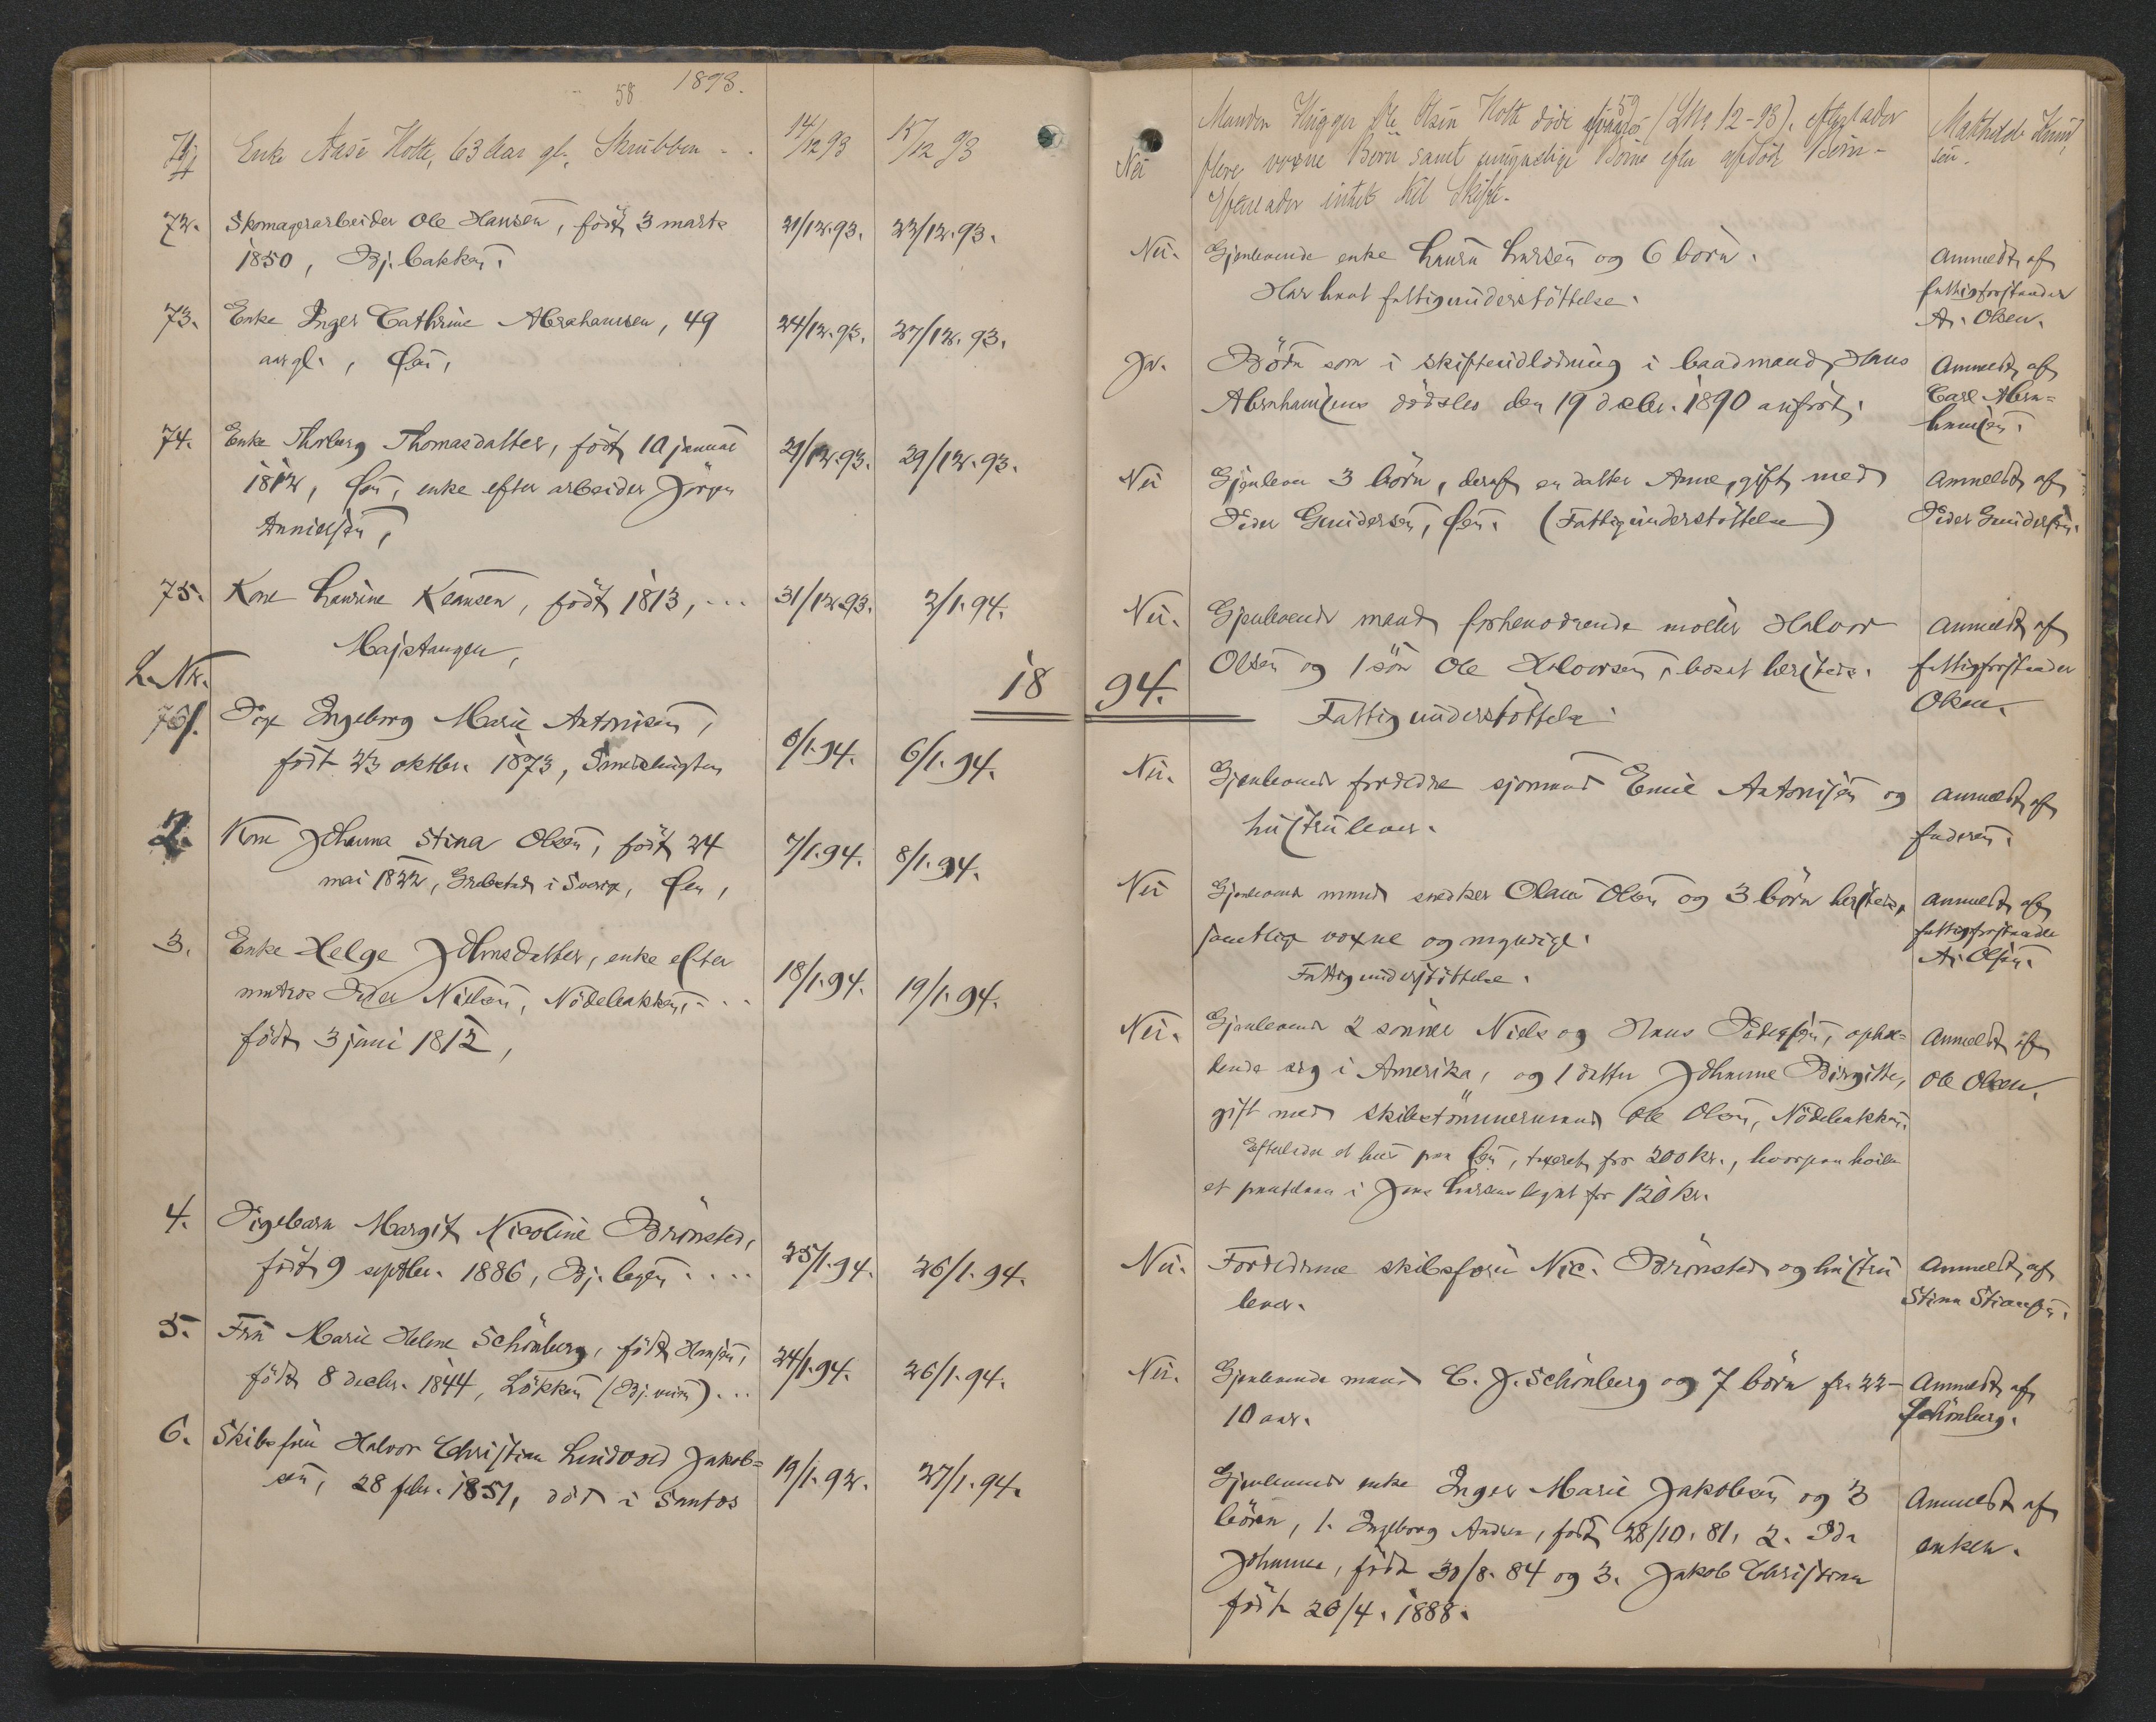 58 1893.
71 Enke Aase Holte, 63 Aar gl., Skrubben - . 14/12 93 15/12 93
72. Skomagerarbeider Ole Hansen, født 3 marts 21/12.93. 22/12.93.
1850, Bj. bakken.
73. Enke Inger Cathrine Abrahamsen, 49 24/12.93. 27/12.93.
aar gl., Øen,
74. Enke Thorburg Thomasdatter, født 10 januar 21/12.93. 29/12.93.
1812, Øen, enke efter arbeider Jörgen
75. Kone Laurine Klausen, født 1813, ... 31/12.93. 2/1.94.
Majstangen,
L.Nr. 18
1. Pige Ingeborg Marie Antonisen, 6/1.94. 6/1.94.
født 23 oktbr. 1873,
2. Kone Johanna Stina Olsen, født 24 7/1.94. 8/1.94.
mai 1822, Grebstad i Sverige, Øen,
3. Enke Helge Johnsdatter, enke efter 18/1.94. 19/1.94.
matros Peder Nielsen, Nödebakken, - ..
født 3 juni 1812,
4. Pigebarn Margit Nicoline Brönsted, 25/1.94. 26/1.94.
født 9 septbr. 1886, Bj. byen ....
5. Fru Marie Helene Schönberg, født Hansen, 24/1.94. 26/1.94.
født 8 decbr. 1844, Løkken (Bj. veien) ...
6. Skibsfører Halvor Christian Lindvad Jakob= 19/1.92. 27/1.94.
sen, 28 febr. 1851, död i Santos
59
Nei Manden Hugger Ole Olsen Holte döde (LNo 12-93). efterlader Mathilde Knud
flere voxne Börn samt umyndige Börn efter afdöd Börn - sen.
Efterlader intet til Skifte.
Nei. Gjenlevende enke Laura Larsen og 6 börn. Anmeldt af
Har havt fattigunderstöttelse. fattigforstander
A. Olsen.
Ja. Börn som i skifteudlodning i baadmand Hans Anmeldt af
Abrahamsens dödsbo den 19 decbr. 1890 anfört. Carl Abra=
hamsen.
Nei Gjenlever 3 börn, deraf en datter Anne, gift med Anmeldt af
Peder Gundersen, Øen. (Fattigunderstöttelse) Peder Gundersen.
Nei. Gjenlevende mand forhenværende møller Halvor Anmeldt af
Olsen og 1 sön Ole Halvorsen, bosat hersteds. fattigforstander
94. Fattigunderstöttelse. Olsen.
Nei. Gjenlevende forældre sjømand Emil Antonisen og Anmeldt af
hustru lever. faderen.
Nei Gjenlevende mand snedker Olaus Olsen og 3 börn hersteds, Anmeldt af
samtlige voxne og myndige. fattigforstander
Fattigunderstöttelse. A. Olsen.
Nei. Gjenlevende 2 sönner Niels og Hans Pedersen, ophol= Anmeldt af
dende sig i Amerika, og 1 datter Johanne Birgitte, Ole Olsen.
gift med skibstömmermand Ole Olsen, Nödebakken.
Efterlader et hus paa Øen, taxeret for 200 kr., hvorpaa hviler
et pantelaan i Jens Larsens legat for 120 kr.
Nei. Forældrene skibsfører Nic. Brönsted og hustru Anmeldt af
lever. Stina Stiansen.
Nei. Gjenlevende mand C. J. Schönberg og 7 börn fra 22- Anmeldt af
10 aar. Schönberg.
Gjenlevende enke Inger Marie Jakobsen og 3 Anmeldt af
börn, 1. Ingeborg Andrea, født 28/10.81, 2. Ida enken.
Johanne, födt 30/8.84 og 3. Jakob Christian
födt 26/4.1888.